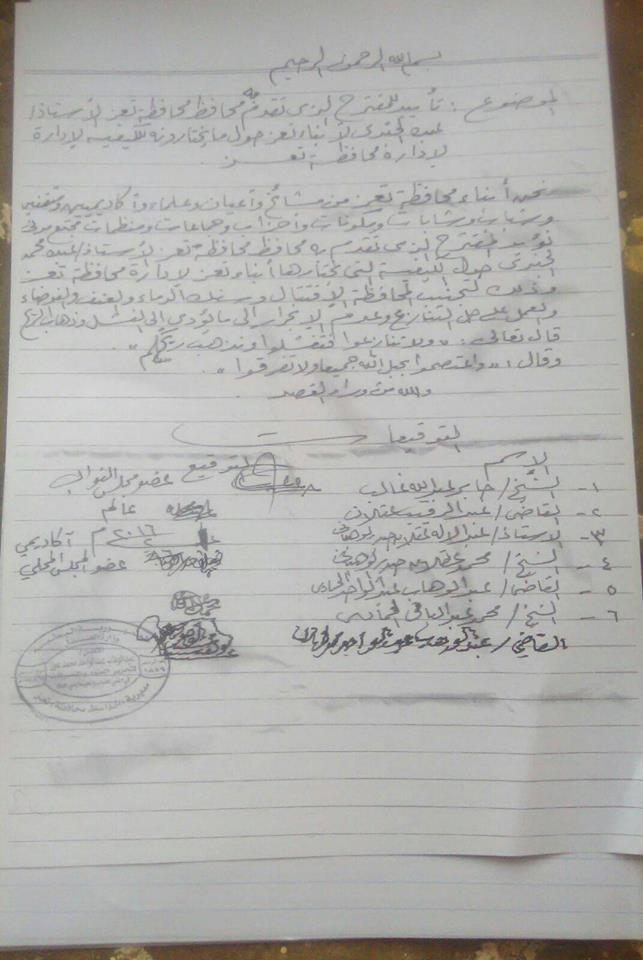 بسم الله الرحمن الرحيم
الموضوع : تأييد للمقترح الذي تقدم به محافظ محافظة تعز الأستاذ/
عبده الجندي لأبناء تعز حول ما يختارونه للكيفية لإدارة
لإدارة محافظة تعز
نحن أبناء محافظة تعز من مشائخ وأعيان وعلماء وأكاديميين ومثقفين
وشباب وشابات ومكونات وأحزاب وجماعات ومنظمات مجتمع مدني
نؤيد المقترح الذي تقدم به محافظ محافظة تعز الأستاذ/ عبده محمد
الجندي حول الكيفية التي يختارها أبناء تعز لإدارة محافظة تعز
وذلك لتجنيب المحافظة الاقتتال وسفك الدماء والعنف والفوضاء
والعمل على حل التنازع وعدم الإنجرار إلى ما يؤدي إلى الفشل وذهاب الريح
قال تعالى : « ولا تنازعوا فتفشلوا وتذهب ريحكم » .
وقال : « واعتصموا بحبل الله جميعا ولا تفرقوا » .
والله من وراء القصد
التوقيعات
الإسم التوقيع
١- الشيخ / جابر عبدالله غالب عضو مجلس النواب
٢- القاضي / عبدالرقيب عقلان عالم
٣- الأستاذ / عبدالإله عقلان حيدر ٢٠١٦ م أكاديمي
٤- الشيخ / محمد عقلان حيدر عضو المجلس المحلي
٥- القاضي / عبدالوهاب عبدالواحد
٦- الشيخ / محمد عبدالباقي
القاضي / عبدالوهاب عبدالواحد